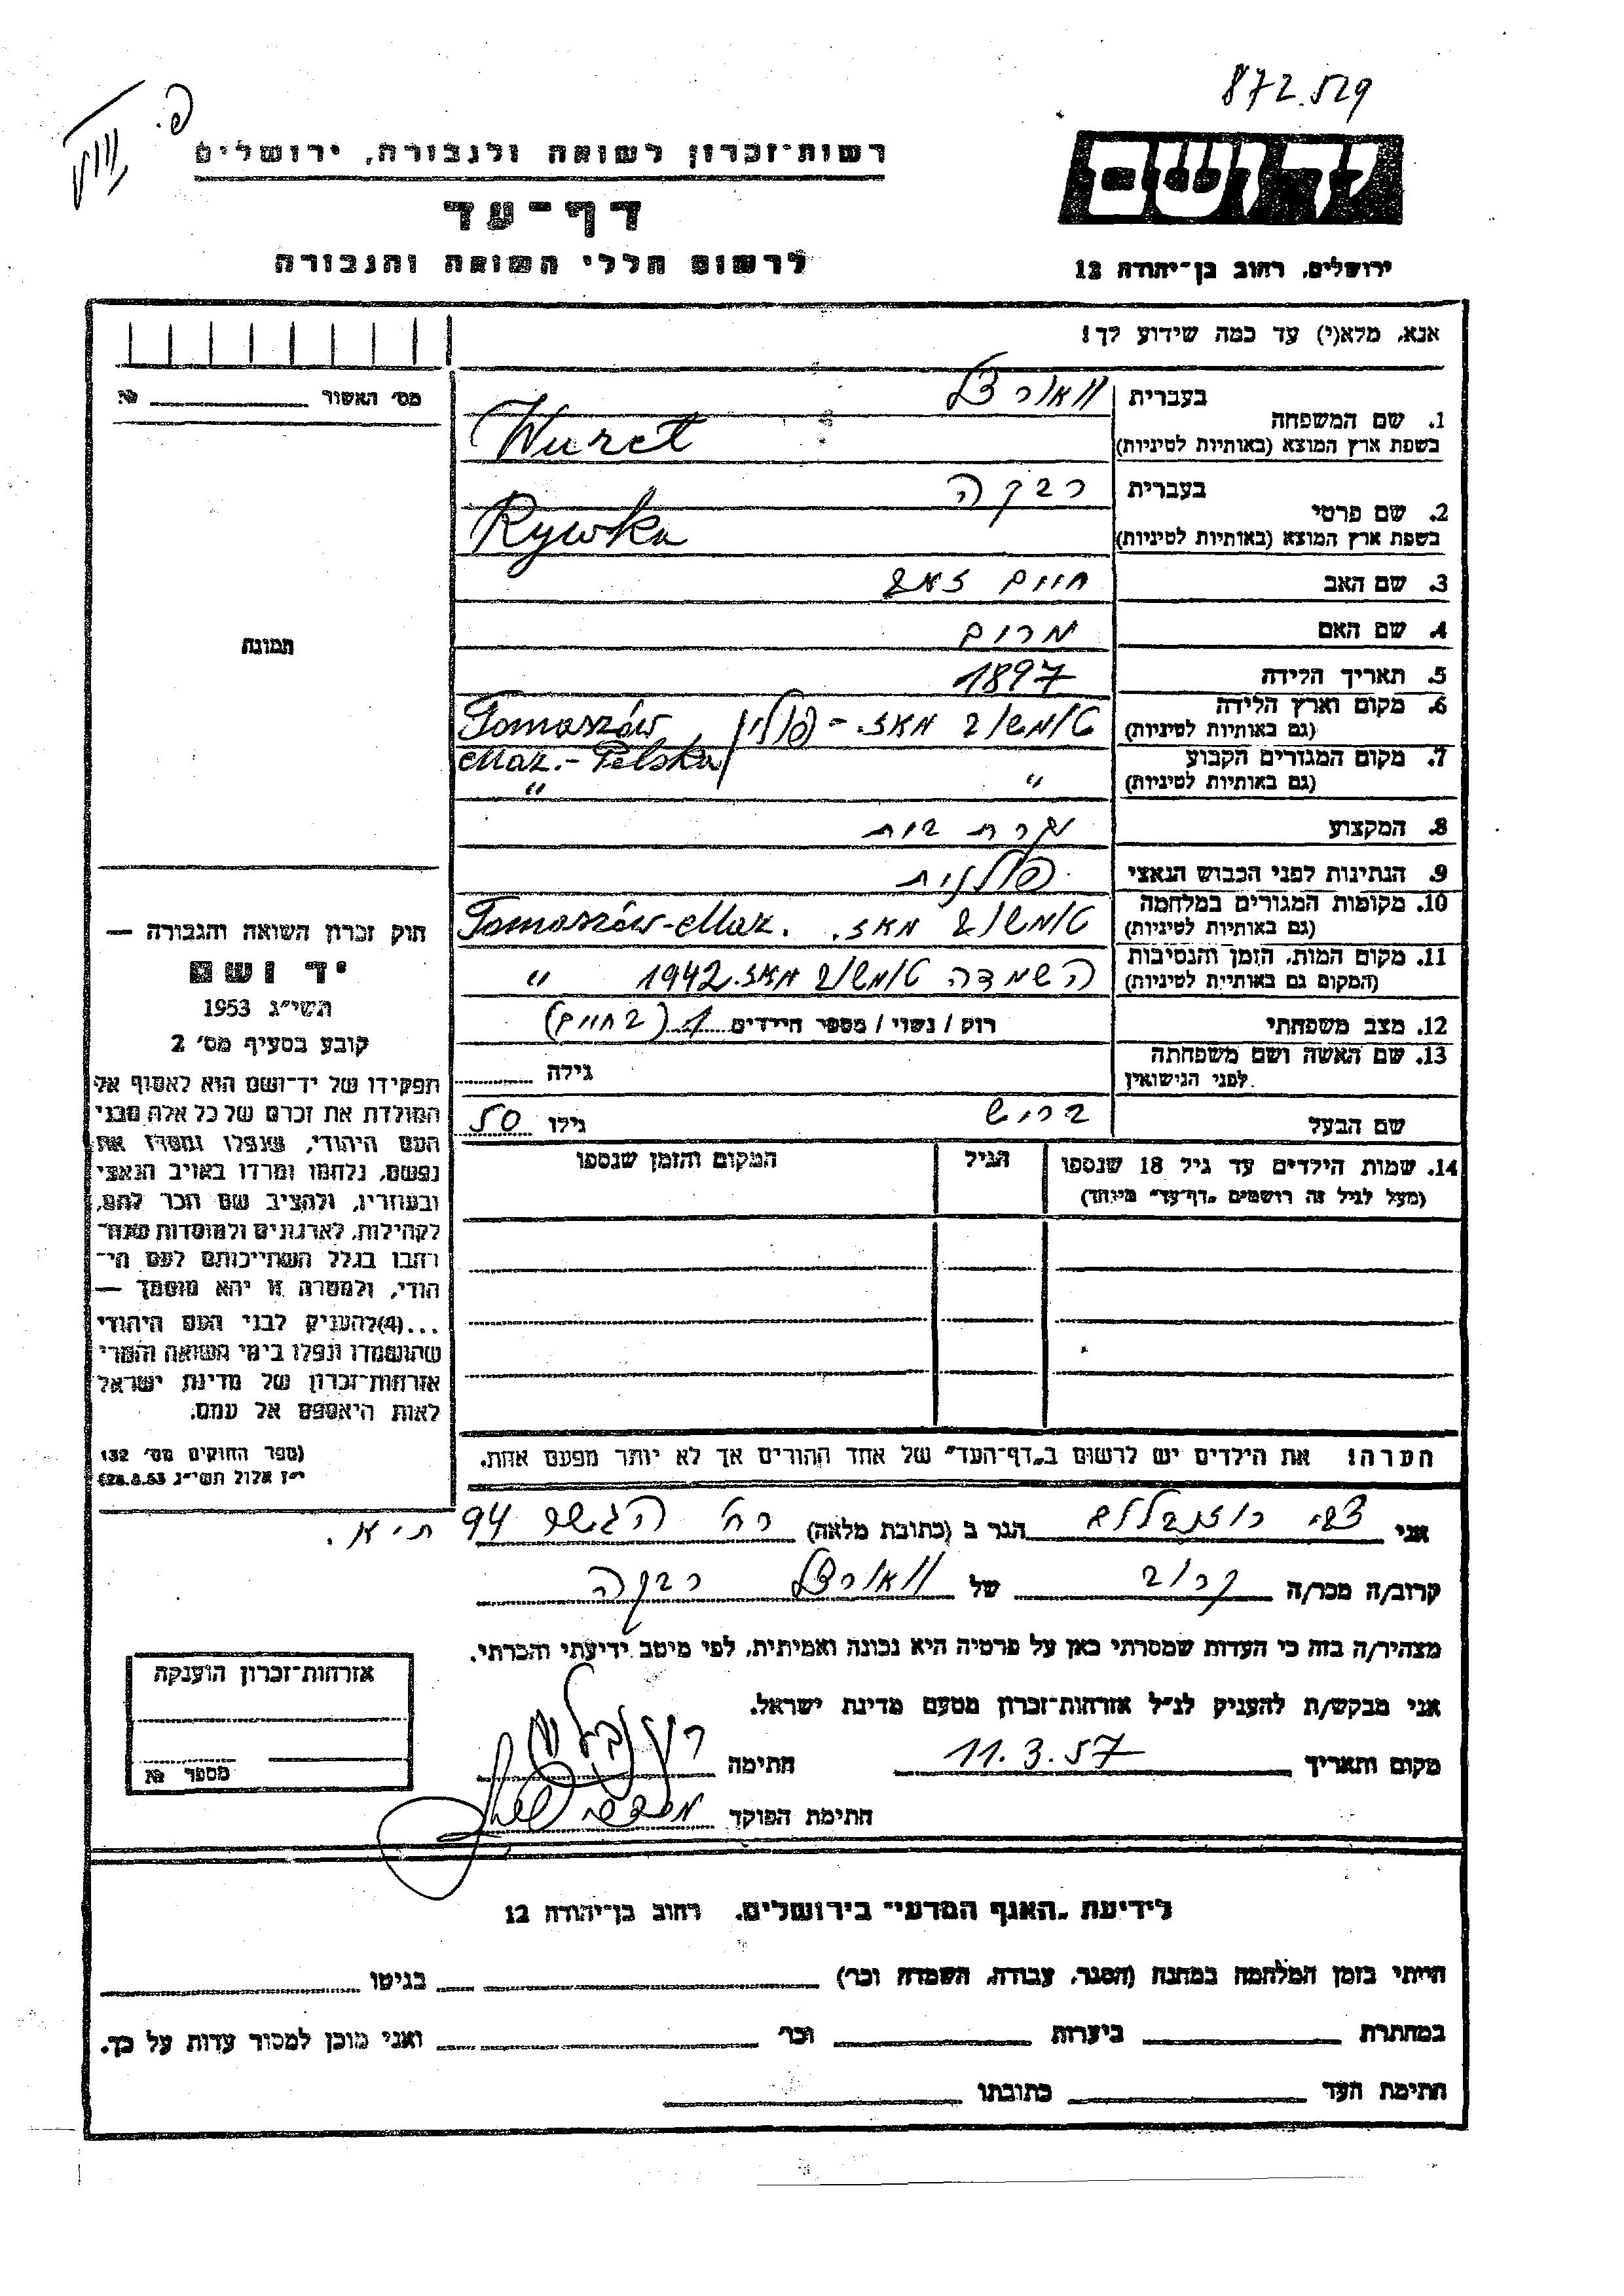 872.529
רשות־זכרון לשואה ולגבורה, ירושלים
יד ושם
דף־עד
לרשום חללי השואה והגבורה
ירושלים, רחוב בן־יהודה 12
אנא, מלא(י) עד כמה שידוע לך!
מס׳ האשור № 
1. שם המשפחה
בעברית
בשפת ארץ המוצא (באותיות לטיניות) Wurct
2. שם פרטי
בעברית רבקה
בשפת ארץ המוצא (באותיות לטיניות) Rywka
תמונה
3. שם האב חיים זאב
4. שם האם מרים
5. תאריך הלידה 1897
6. מקום וארץ הלידה (גם באותיות לטיניות) טומשוב מאז. - פולין / Tomaszów Maz. - Polska
7. מקום המגורים הקבוע (גם באותיות לטיניות) " "
8. המקצוע עקרת בית
9. הנתינות לפני הכבוש הנאצי פולנית
10. מקומות המגורים במלחמה (גם באותיות לטיניות) טומשוב מאז. Tomaszów-Maz.
11. מקום המות, הזמן והנסיבות (המקום גם באותיות לטיניות) השמדה טומשוב מאז. 1942 "
12. מצב משפחתי רוק / נשוי / מספר הילדים (בחיים)
13. שם האשה ושם משפחתה לפני הנישואין גילה
שם הבעל ברוש גילו 50
14. שמות הילדים עד גיל 18 שנספו
(מעל לגיל זה רושמים „דף־עד" מיוחד)
הגיל
המקום והזמן שנספו
חוק זכרון השואה והגבורה —
יד ושם
תשי״ג 1953
קובע בסעיף מס׳ 2
תפקידו של יד־ושם הוא לאסוף אל
המולדת את זכרם של כל אלה מבני
העם היהודי, שנפלו ומסרו את
נפשם, נלחמו ומרדו באויב הנאצי
ובעוזריו, ולהציב שם וזכר להם,
לקהילות, לארגונים ולמוסדות שנח־
רבו בגלל השתייכותם לעם הי־
הודי, ולמטרה זו יהא מוסמך —
...(4) להעניק לבני העם היהודי
שהושמדו ונפלו בימי השואה והמרי
אזרחות־זכרון של מדינת ישראל
לאות היאספם אל עמם.
(ספר החוקים מס׳ 132
י״ז אלול תשי״ג 28.8.53)
הערה! את הילדים יש לרשום ב„דף־העד" של אחד ההורים אך לא יותר מפעם אחת.
אני צבי רוזנבלום הגר ב (כתובת מלאה) רח׳ הגשר 94 ת״א.
קרוב/ה מכר/ה קרוב של רבקה
מצהיר/ה בזה כי העדות שמסרתי כאן על פרטיה היא נכונה ואמיתית, לפי מיטב ידיעתי והכרתי.
אני מבקש/ת להעניק לנ״ל אזרחות־זכרון מטעם מדינת ישראל.
מקום ותאריך 11.3.57 חתימה רוזנבלום
חתימת הפוקד
אזרחות־זכרון הוענקה
מספר №
לידיעת „האגף המדעי" בירושלים, רחוב בן־יהודה 12
הייתי בזמן המלחמה במחנה (הסגר, עבודה, השמדה וכו׳) בגיטו
במחתרת ביערות וכו׳ ואני מוכן למסור עדות על כך.
חתימת העד כתובתו